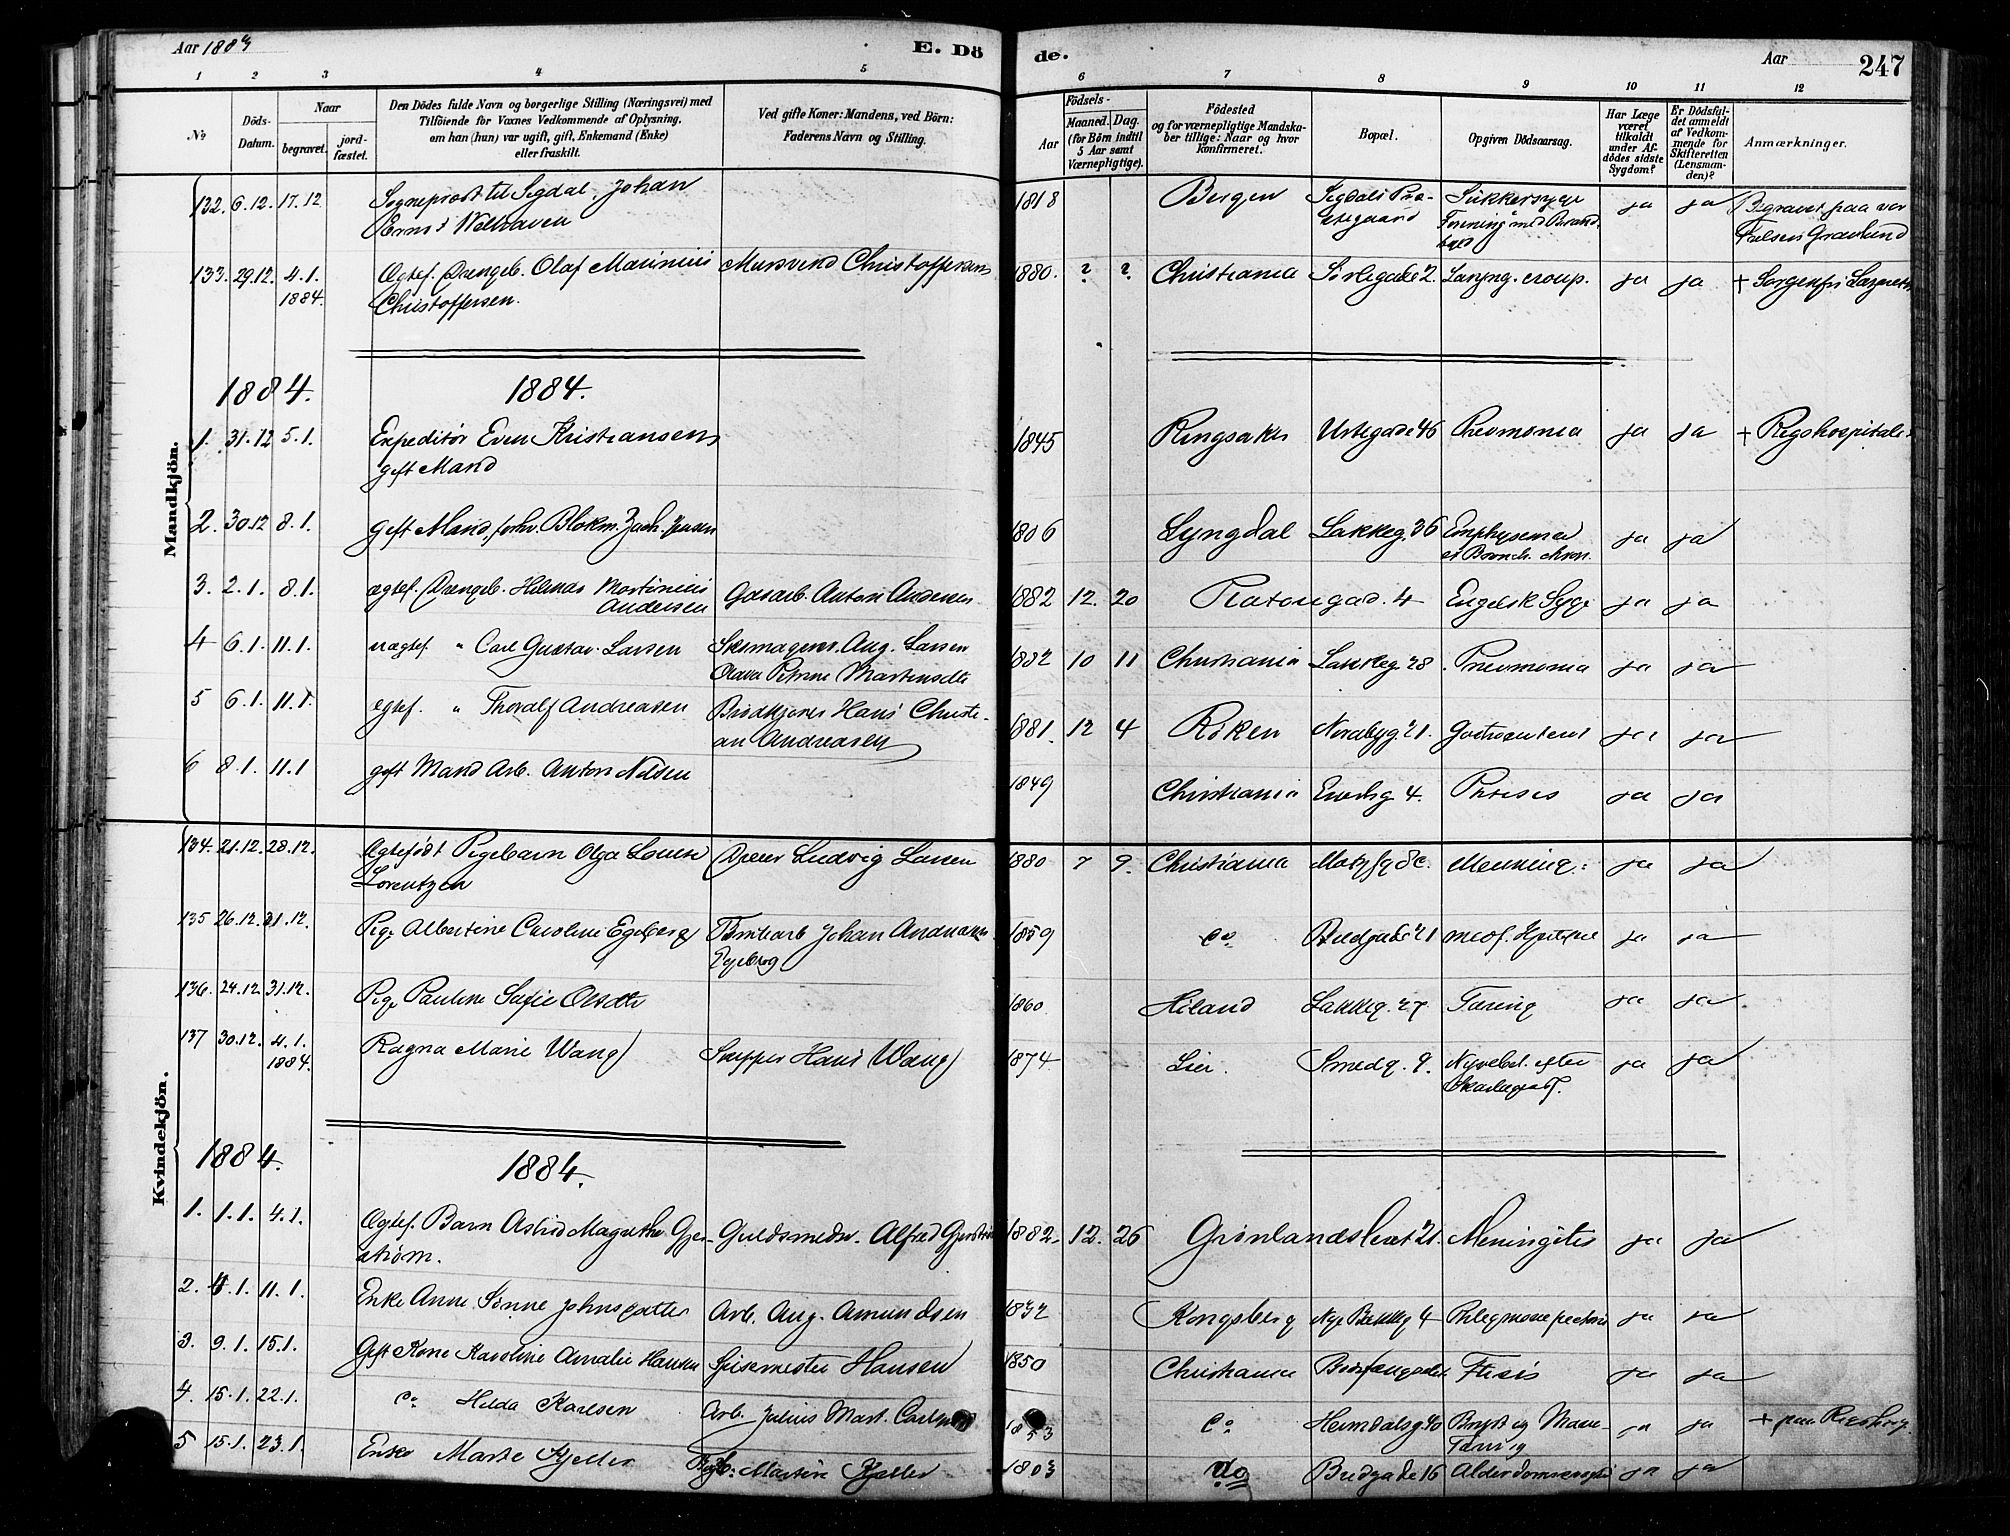 Aar 1883
E. Dö
de.
Aar
247
1 2 3 4 5 6 7 8 9 10 11 12
No
Döds-Datum.
Naar
begravet.
jord-fæstet.
Den Dödes fulde Navn og borgerlige Stilling (Næringsvei) med
Tilföiende for Voxnes Vedkommende af Oplysning,
om han (hun) var ugift, gift, Enkemand (Enke)
eller fraskilt.
Ved gifte Koner: Mandens, ved Börn:
Faderens Navn og Stilling.
Födsels-
Aar
Maaned. Dag.
(for Börn indtil
5 Aar samt
Værnepligtige).
Födested
og for værnepligtige Mandska-
ber tillige: Naar og hvor
konfirmeret.
Bopæl.
Opgiven Dödsaarsag.
Har Læge
været
tilkaldt
under Af-
dödes sidste
Sygdom?
Er Dödsfal-
det anmeldt
af Vedkom-
mende for
Skifteretten
(Lensman-
den)?
Anmærkninger.
Mandkjön.
132. 6.12. 17.12 Sogneprost til Sigdal, Johan 1818 Bergen Sigdals Præ- Sukkersyge ja ja Begravet paa vor
Ernst Welhaven stegaard Forening med Brand- Frelsers Gravlund
byld
133. 29.12. 4.1. Ægtef. Drengeb. Olaf Marinius Mursvend Christoffersen 1880. ? ? Christiania Sørlegade 2. Laryng. croup. ja ja + Sorgenfri Lazareth
1884. Christoffersen.
1884. 1884.
1. 31.12 5.1. Expeditør Even Kristiansen 1845 Ringsaker Urtegade 46 Pneumonia ja ja + Rigshospitalet
gift Mand
2. 30.12 8.1. gift Mand, forhv. Blokm. Zach. Jensen 1806 Lyngdal Lakkeg. 36 Emphysema ja ja
et Bronch. chron.
3. 2.1. 8.1. ægtef. Drengeb. Hilmar Martinius Gasarb. Anton Andersen 1882 12. 20 Platousgad. 4 Engelsk Syge ja ja
Andersen
4 6.1. 11.1. uægtef. " Carl Gustav Larsen Skomagersv. Aug. Larsen 1882 10 11 Christiania Lakkeg. 28. Pneumonia ja ja
Olava Petrine Martinsdtr
5 6.1. 11.1. ægtef. " Thoralf Andreasen Brødkjører Hans Christi- 1881. 12 4 Røken Nordbyg. 21. Gastroenterit ja ja
an Andreasen
6 8.1. 11.1 gift Mand Arb. Anton Nilsen 1849 Christiania Enerhg. 4. Phtisis ja ja
Kvindekjön.
134. 21.12. 28.12. Ægtefødt Pigebarn Olga Louise Dreier Ludvig Larsen 1880 7 9. Christiania Motzfg. 8c. Mening. ja ja
Lorentzen
135 26.12. 31.12. Pige Albertine Caroline Egeberg Tomtearb. Johan Andreas 1859 do Bredgade 21 ja ja
Egeberg
136. 24.12. 31.12. Pige Pauline Sofie Olsdtr 1860 Høland Lakkeg. 27 Tæring ja ja
137 30.12. 4.1. Ragna Marie Wang Snepper Hans Wang 1874 Lier. Smedg. 9. Nyrebet. efter ja ja
1884. Skarlagensf.
1884. 1884.
1. 1.1. 4.1. Ægtef. Barn Astrid Magrethe Gjer- Guldsmedsv. Alfred Gjerstrøm 1882. 12. 26 Grønlandsleret 21. Meningitis ja ja
strøm.
2. 4.1. 11.1. Enke Anne Sønne Johnsdatter Arb. Aug. Amundsen 1832 Kongsberg Nye Bakkeg 4 Phlegmone pectoris ja ja
3. 9.1. 15.1. Gift Kone Karoline Amalie Hansen Spisemester Hansen 1850 Christiania Ftisis ja ja
4. 15.1. 22.1. do Hilda Karlsen Arb. Julius Mart. Carlsen 1853 do Heimdalsg. 40 Bryst og Mave- ja ja + paa
Tæring
5 15.1. 23.1. Enke Marte Kjeller Martin Kjeller 1803 do Bredgade 16 Alderdomssvaghed ja ja